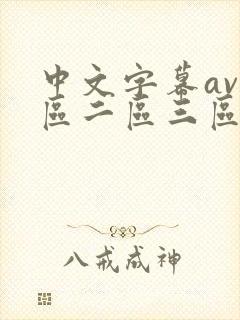 中文字幕av
區二區三區
八戒成神